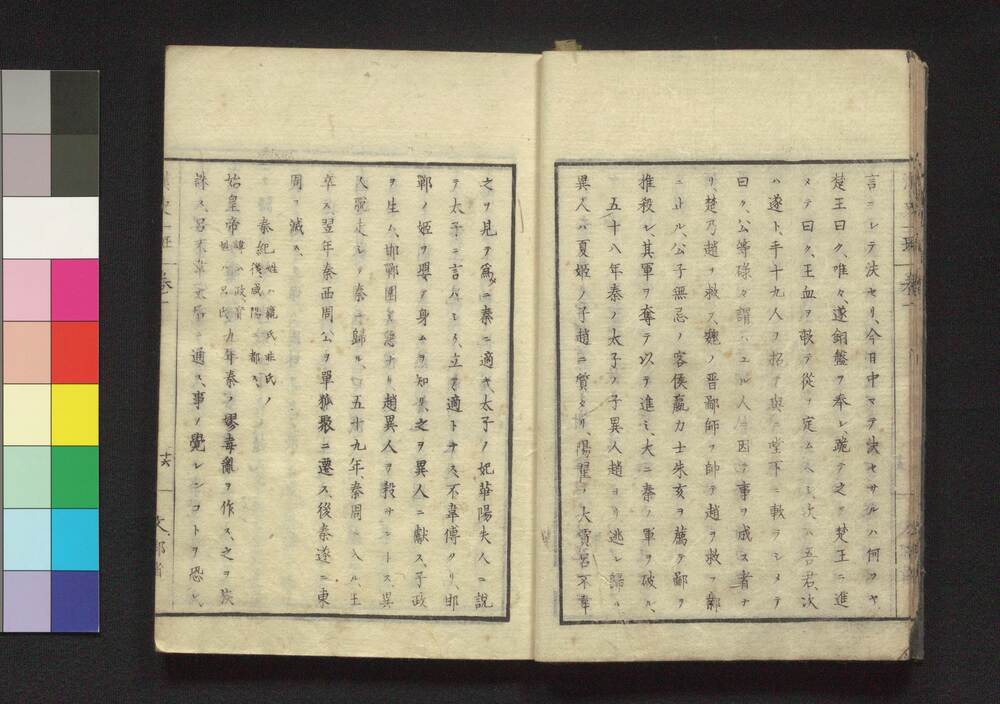 言ニシテ決セリ、今日中マテ決セサルハ何ヲヤ
楚王曰ク、唯々、遂銅盤ヲ奉シ、跪テ之ヲ楚王ニ進
メテ曰ク、王血ヲ歃テ從ヲ定ム、次ハ吾君、次
ハ遂ト、手十九人ヲ招テ與ニ堂下ニ歃ラシメテ
曰ク、公等碌々謂ハユル人ニ因テ事ヲ成ス者ナ
リ、楚乃趙ヲ救ス、魏ノ晋鄙師ヲ帥テ趙ヲ救フ、鄴
ニ止ル、公子無忌ノ客侯嬴力士朱亥ヲ薦テ鄙ヲ
推殺シ、其軍ヲ奪テ以テ進ミ、大ニ秦ノ軍ヲ破ル、
五十八年秦ノ太子ノ子異人趙ヨリ逃レ歸ル、
異人ハ夏姬ノ子趙ニ質タリ、陽翟ノ大賈呂不韋
之ヲ見ヲ爲ニ秦ニ適キ、太子ノ妃華陽夫人ニ説
テ太子ニ言ハシム、立テ適トナス、不韋傅タリ、邯
鄲ノ姬ヲ娶テ身ムヲ知リ、之ヲ異人ニ獻ス、子政
ヲ生ム、邯鄲圍急ナリ、趙異人ヲ殺サントス、異
人脫走シテ秦ニ歸ル、五十九年、秦周ニ入ル、王
卒ス、翌年秦西周公ヲ單狐聚ニ遷ス、後秦遂ニ東
周ヲ滅ス、
秦紀 姓ハ嬴氏非氏ノ後咸陽ニ都ス、
始皇帝 諱ハ政、實姓ハ呂氏、九年秦ノ嫪毐亂ヲ作ス、之ヲ族
誅ス、呂不韋太后ニ通ス、事ノ覺レンコトヲ恐レ、
十六
文部省